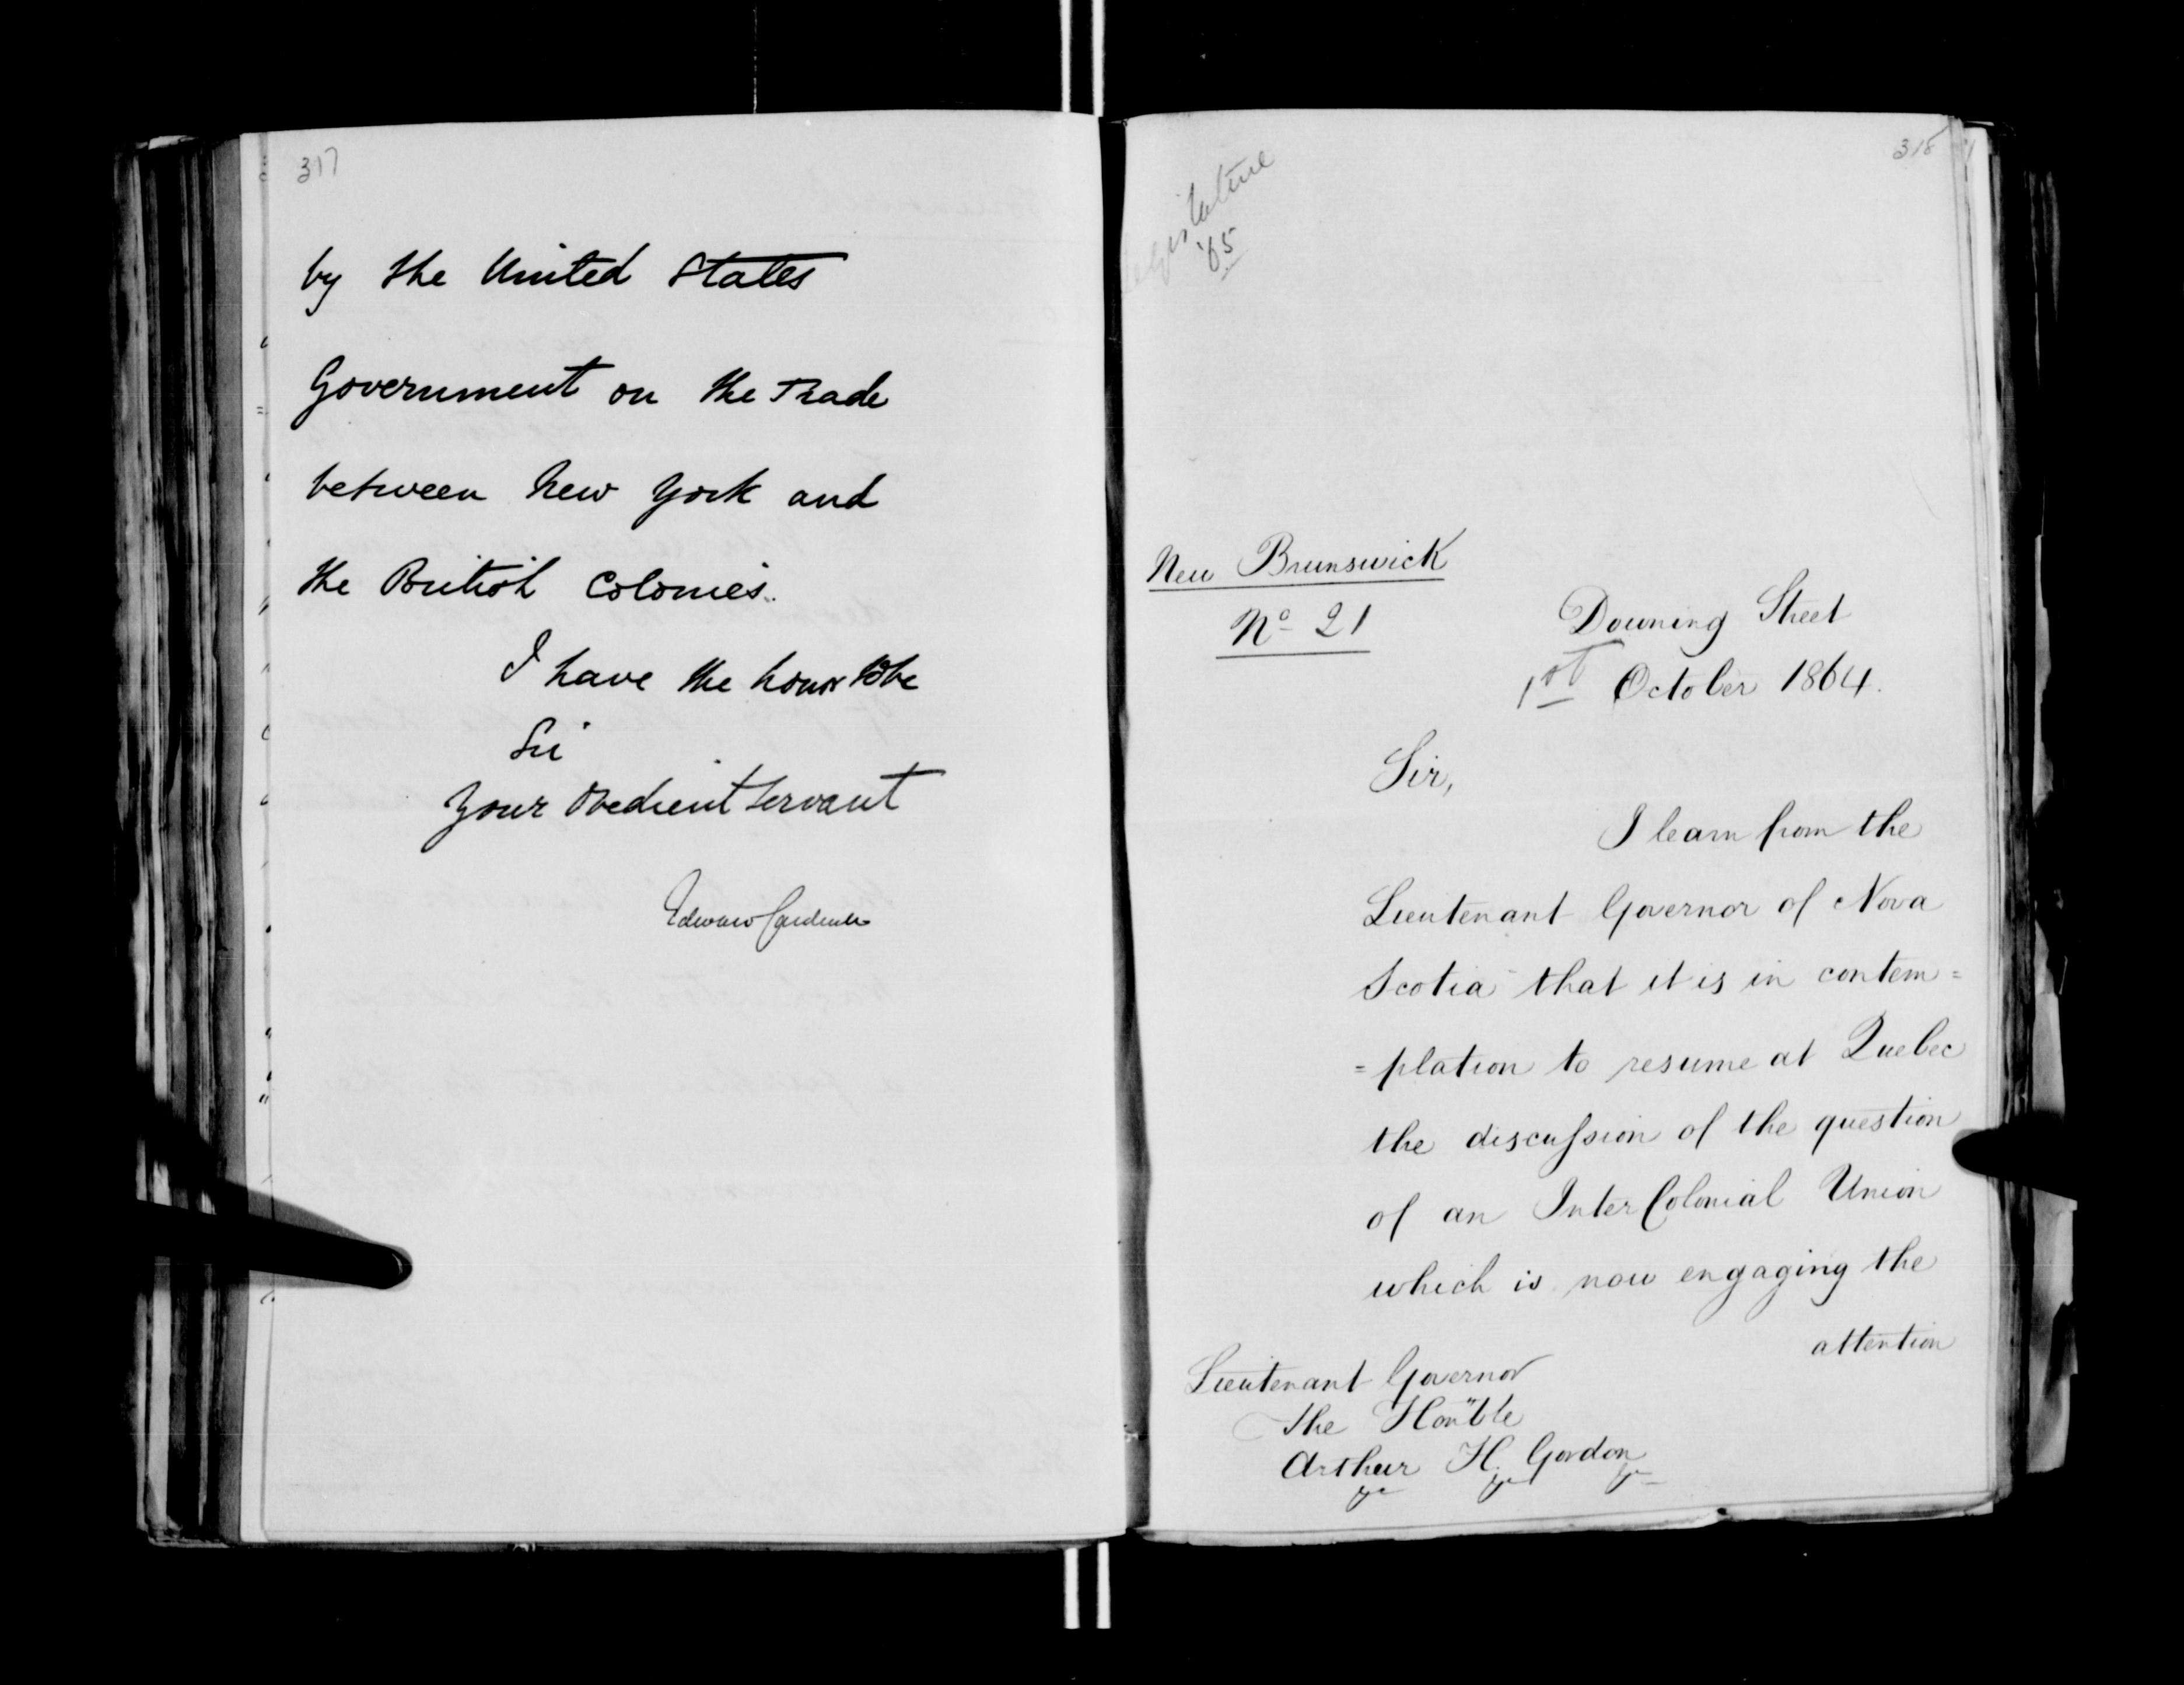 317
by the United States
Government on the Trade
between New York and
the British Colonies.
I have the honor to be
Sir
Your Obedient Servant
Edward Cardwell
318
Legislature
'65
New Brunswick
No 21
Downing Street
1st October 1864.
Sir,
I learn from the
Lieutenant Governor of Nova
Scotia that it is in contem=
=plation to resume at Quebec
the discussion of the question
of an InterColonial Union
which is now engaging the
attention
Lieutenant Governor
The Honble
Arthur H. Gordon
&c &c &c